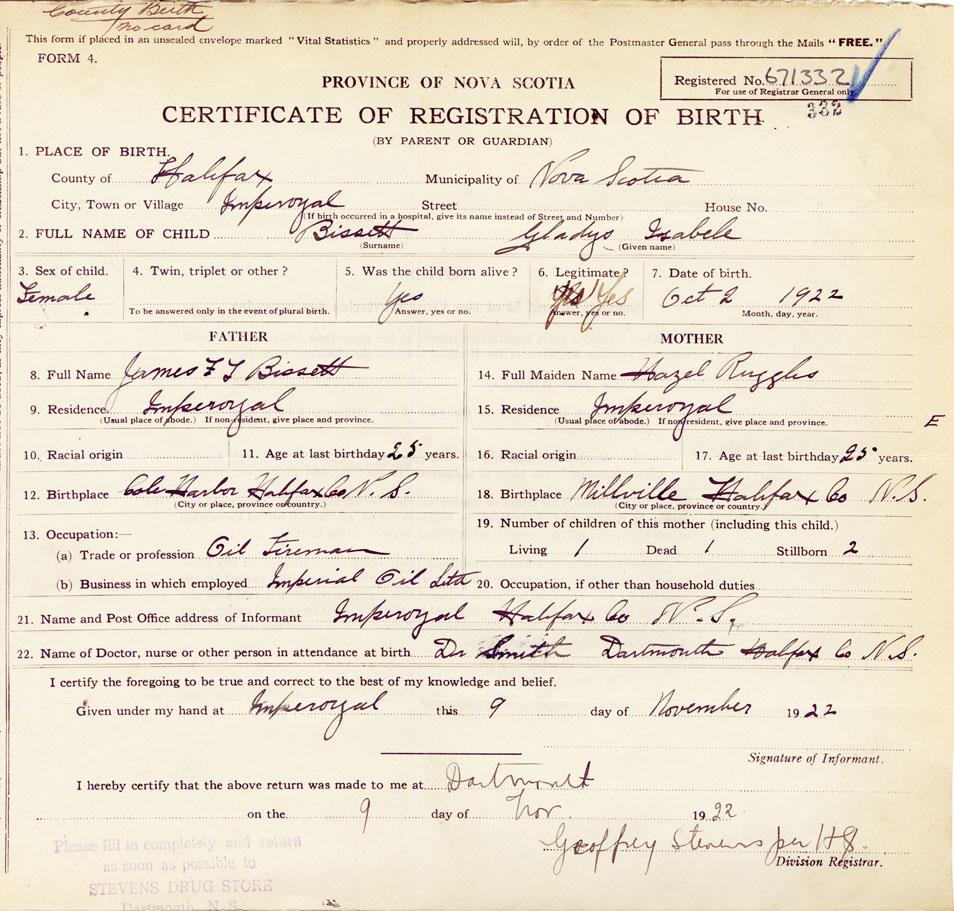 County Birth
no card
This form if placed in an unsealed envelope marked "Vital Statistics" and properly addressed will, by order of the Postmaster General pass through the Mails "FREE."
FORM 4.
Registered No. 671332
For use of Registrar General only
332
PROVINCE OF NOVA SCOTIA
CERTIFICATE OF REGISTRATION OF BIRTH
(BY PARENT OR GUARDIAN)
1. PLACE OF BIRTH.
County of Halifax Municipality of Nova Scotia
City, Town or Village Imperoyal Street House No.
(If birth occurred in a hospital, give its name instead of Street and Number)
2. FULL NAME OF CHILD Bissett Gladys Isabele
(Surname) (Given name)
3. Sex of child. 4. Twin, triplet or other? 5. Was the child born alive? 6. Legitimate? 7. Date of birth.
Female Yes Yes Yes Oct 2 1922
To be answered only in the event of plural birth. Answer, yes or no. Answer, yes or no. Month, day, year.
FATHER MOTHER
8. Full Name James F J Bissett 14. Full Maiden Name Hazel Ruggles
9. Residence. Imperoyal 15. Residence Imperoyal E
(Usual place of abode.) If non-resident, give place and province. (Usual place of abode.) If non-resident, give place and province.
10. Racial origin 11. Age at last birthday 25 years. 16. Racial origin 17. Age at last birthday 25 years.
12. Birthplace Cole Harbor Halifax Co N.S. 18. Birthplace Millville Halifax Co N.S.
(City or place, province or country.) (City or place, province or country.)
13. Occupation:— 19. Number of children of this mother (including this child.)
(a) Trade or profession Oil Fireman Living 1 Dead 1 Stillborn 2
(b) Business in which employed Imperial Oil Ltd 20. Occupation, if other than household duties
21. Name and Post Office address of Informant Imperoyal Halifax Co N.S.
22. Name of Doctor, nurse or other person in attendance at birth Dr Smith Dartmouth Halifax Co N.S.
I certify the foregoing to be true and correct to the best of my knowledge and belief.
Given under my hand at Imperoyal this 9 day of November 1922
Signature of Informant.
I hereby certify that the above return was made to me at Dartmouth
on the 9 day of Nov. 1922
Geoffrey Stevens per HS.
Division Registrar.
Please fill in completely and return
as soon as possible to
STEVENS DRUG STORE
Dartmouth, N. S.